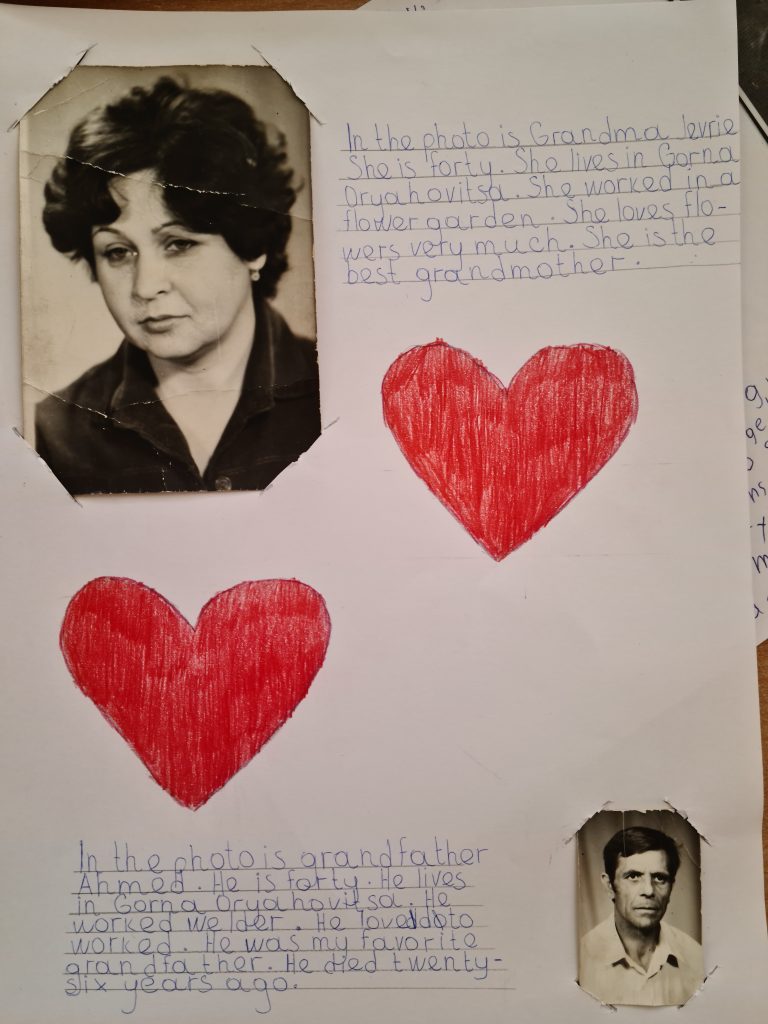 In the photo is Grandma Ievrie
She is forty. She lives in Gorna
Oryahovitsa. She worked in a
flower garden. She loves flo-
wers very much. She is the
best grandmother.
In the photo is grandfather
Ahmed. He is forty. He lives
in Gorna Oryahovitsa. He
worked welder. He loved to
worked. He was my favorite
grandfather. He died twenty-
six years ago.